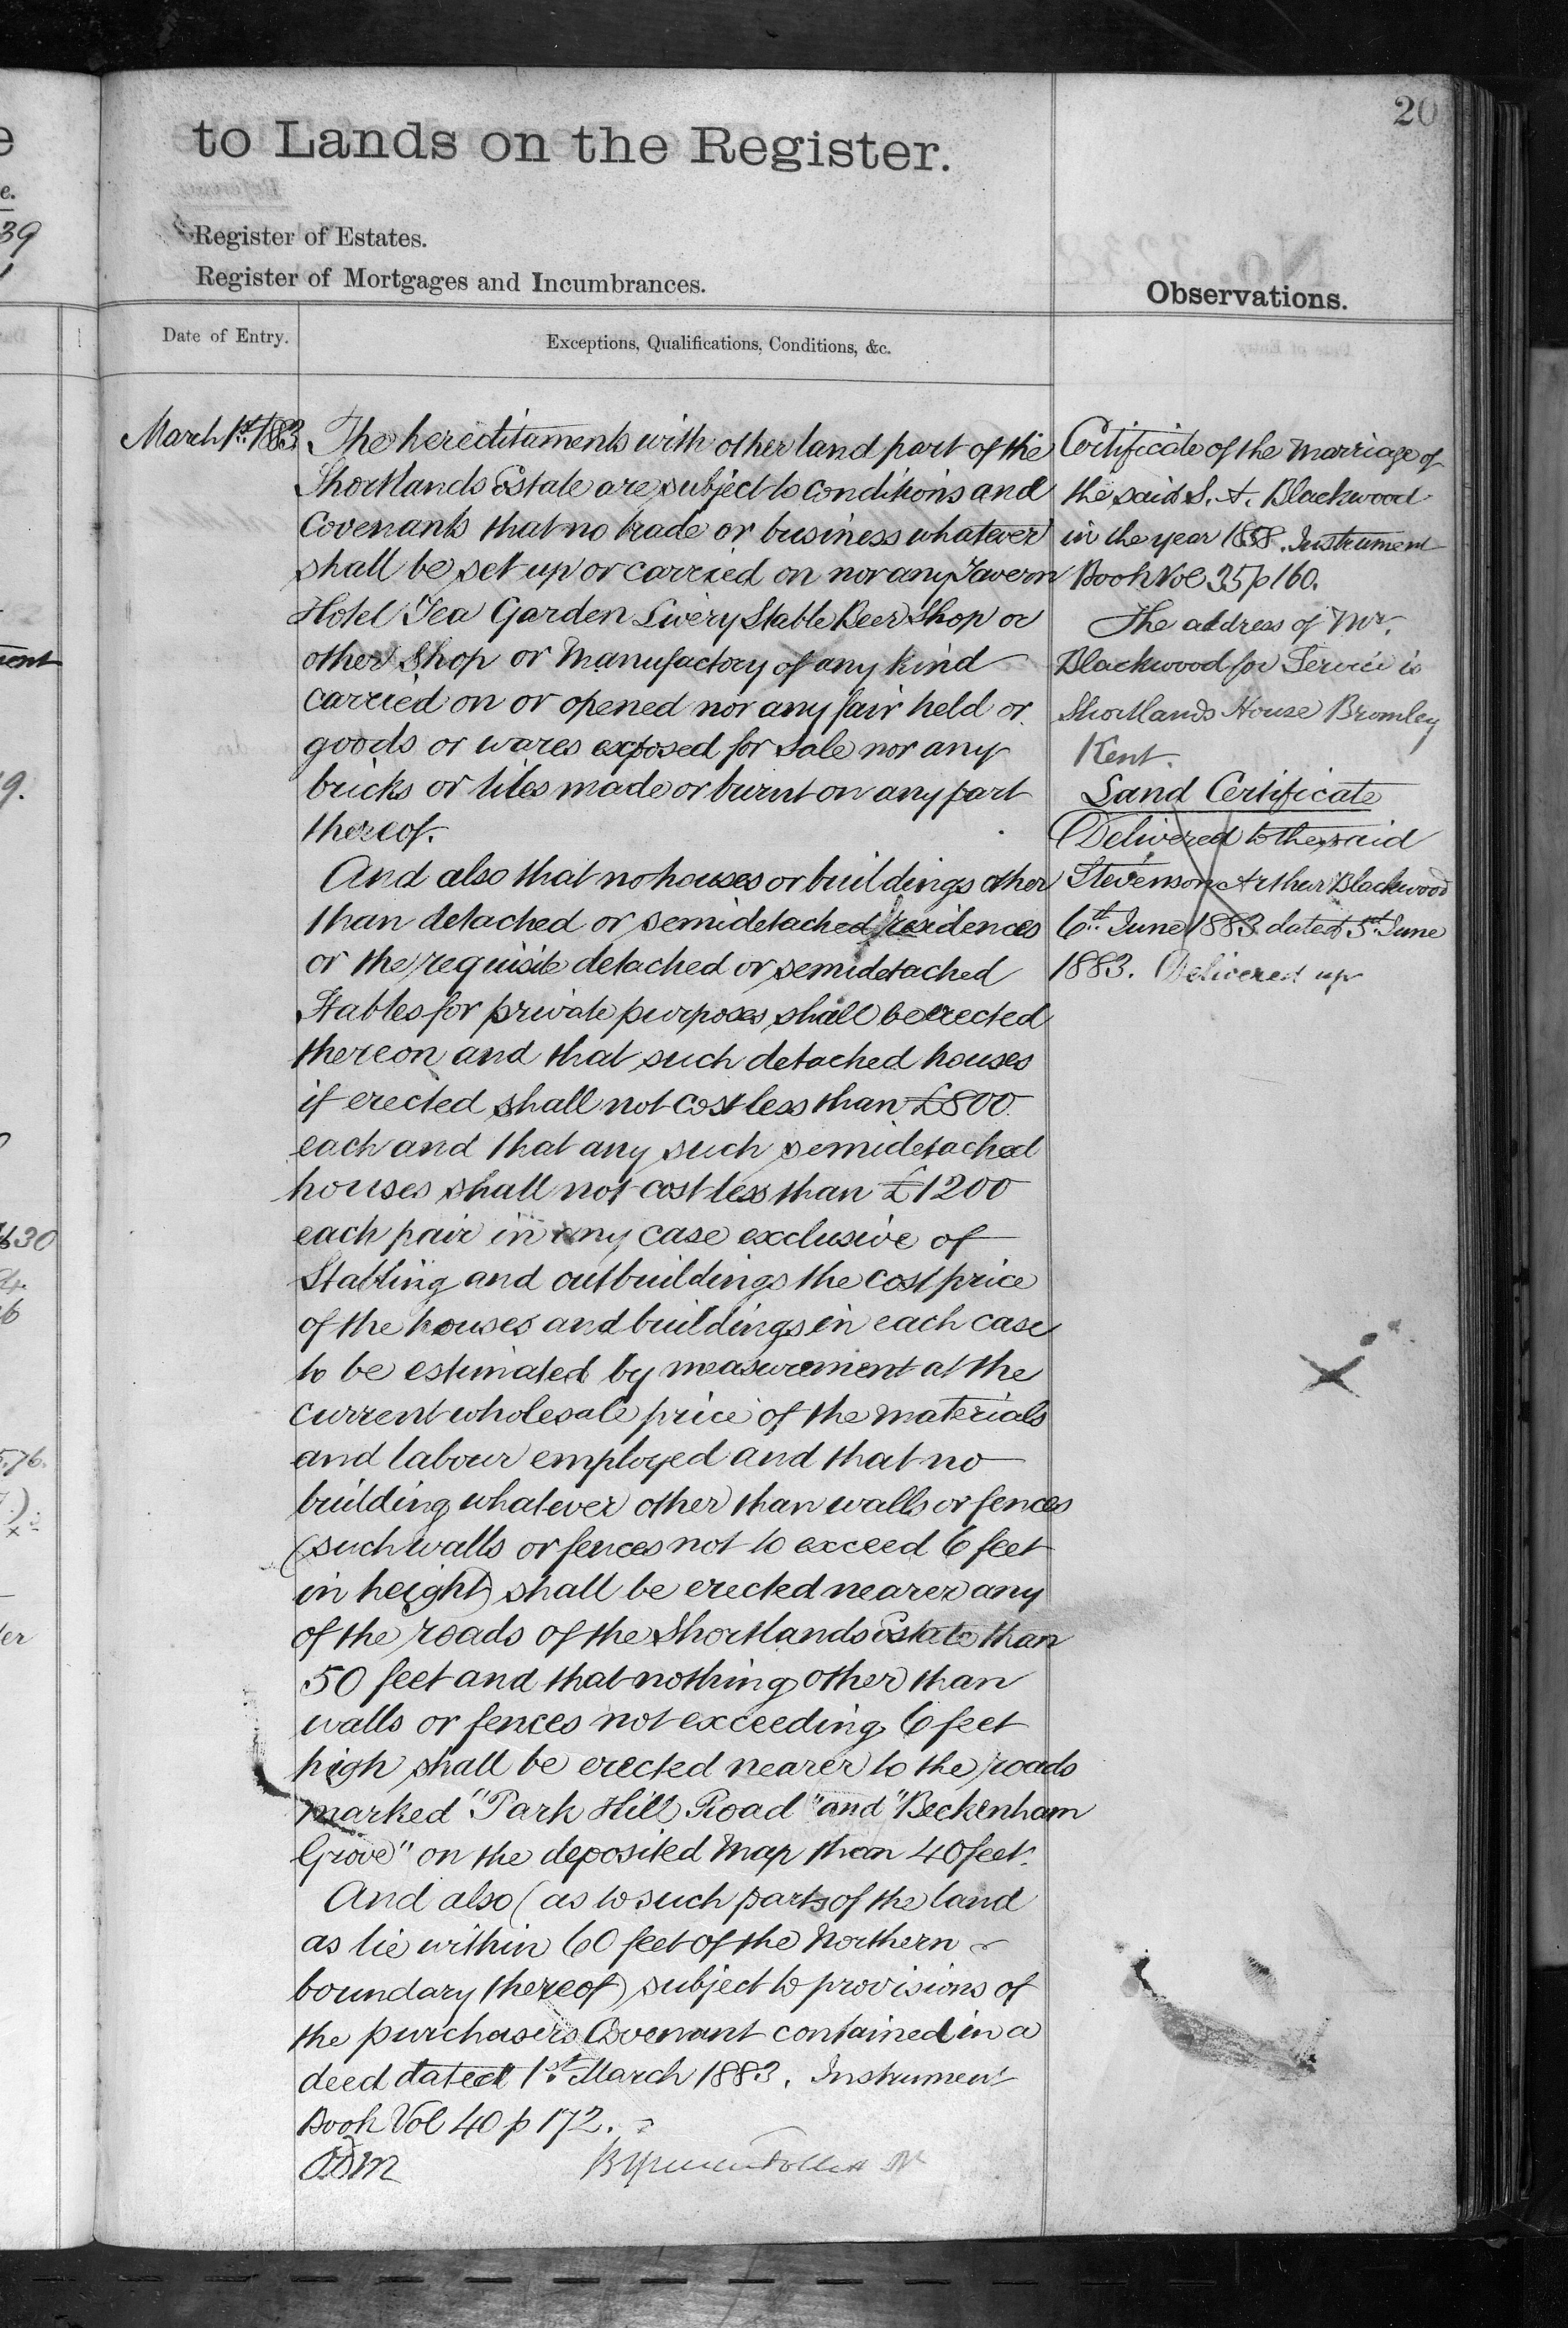 20
to Lands on the Register.
Register of Estates.
Register of Mortgages and Incumbrances.
Observations.
Date of Entry.
Exceptions, Qualifications, Conditions, &c.
March 1st 1883
The hereditaments with other land part of the
Shortlands Estate are subject to conditions and
Covenants that no trade or business whatever
shall be set up or carried on nor any Tavern
Hotel Tea Garden Livery Stable Beer Shop or
other Shop or Manufactory of any kind
carried on or opened nor any fair held or
goods or wares exposed for sale nor any
bricks or tiles made or burnt on any part
thereof.
And also that no houses or buildings other
than detached or semidetached residences
or the requisite detached or semidetached
Stables for private purposes shall be erected
thereon and that such detached houses
if erected shall not cost less than £800
each and that any such semidetached
houses shall not cost less than £1200
each pair in any case exclusive of
Stabling and outbuildings the cost price
of the houses and buildings in each case
to be estimated by measurement at the
current wholesale price of the materials
and labour employed and that no
building whatever other than walls or fences
(such walls or fences not to exceed 6 feet
in height) shall be erected nearer any
of the roads of the Shortlands Estate than
50 feet and that nothing other than
walls or fences not exceeding 6 feet
high shall be erected nearer to the roads
marked "Park Hill Road" and "Beckenham
Grove" on the deposited Map than 40 feet.
And also (as to such parts of the land
as lie within 60 feet of the Northern
boundary thereof) subject to provisions of
the purchasers Covenant contained in a
deed dated 1st March 1883. Instrument
Book Vol 40 p 172.
Certificate of the Marriage of
the said S. A. Blackwood
in the year 1858. Instrument
Book Vol 35 p 160.
The address of Mr.
Blackwood for Service is
Shortlands House Bromley
Kent.
Land Certificate
Delivered to the said
Stevenson Arthur Blackwood
6th June 1883 dated 5th June
1883. Delivered up